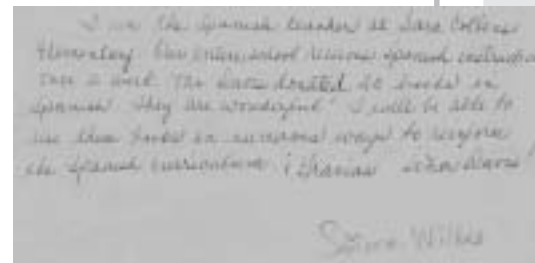 I am the Spanish teacher at Sara Collins
Elementary. Our entire school receives Spanish instruction
once a week. The donated 20 books in
Spanish. They are wonderful! I will be able to
use these books in numerous ways to reinforce
the Spanish curriculum ¡Gracias Señor